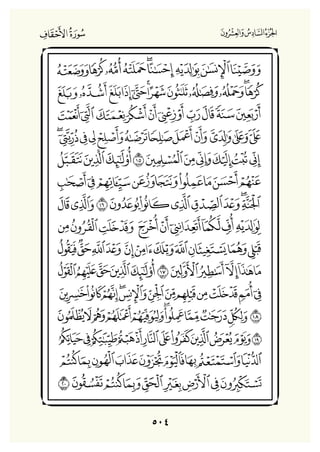 الجزء السادس والعشرون
سورة الأحقاف
ووصينا الإنسان بوالديه إحسانا حملته أمه كرها ووضعته
كرها وحمله وفصاله ثلاثون شهرا حتى إذا بلغ أشده وبلغ
أربعين سنة قال رب أوزعني أن أشكر نعمتك التي أنعمت
علي وعلى والدي وأن أعمل صالحا ترضاه وأصلح لي في ذريتي
إني تبت إليك وإني من المسلمين ١٥ أولئك الذين نتقبل
عنهم أحسن ما عملوا ونتجاوز عن سيئاتهم في أصحاب
الجنة وعد الصدق الذي كانوا يوعدون ١٦ والذي قال
لوالديه أف لكما أتعدانني أن أخرج وقد خلت القرون من
قبلي وهما يستغيثان الله ويلك آمن إن وعد الله حق فيقول
ما هذا إلا أساطير الأولين ١٧ أولئك الذين حق عليهم القول
في أمم قد خلت من قبلهم من الجن والإنس إنهم كانوا خاسرين
١٨ ولكل درجات مما عملوا وليوفيهم أعمالهم وهم لا يظلمون
١٩ ويوم يعرض الذين كفروا على النار أذهبتم طيباتكم في حياتكم
الدنيا واستمتعتم بها فاليوم تجزون عذاب الهون بما كنتم
تستكبرون في الأرض بغير الحق وبما كنتم تفسقون ٢٠
٥٠٤